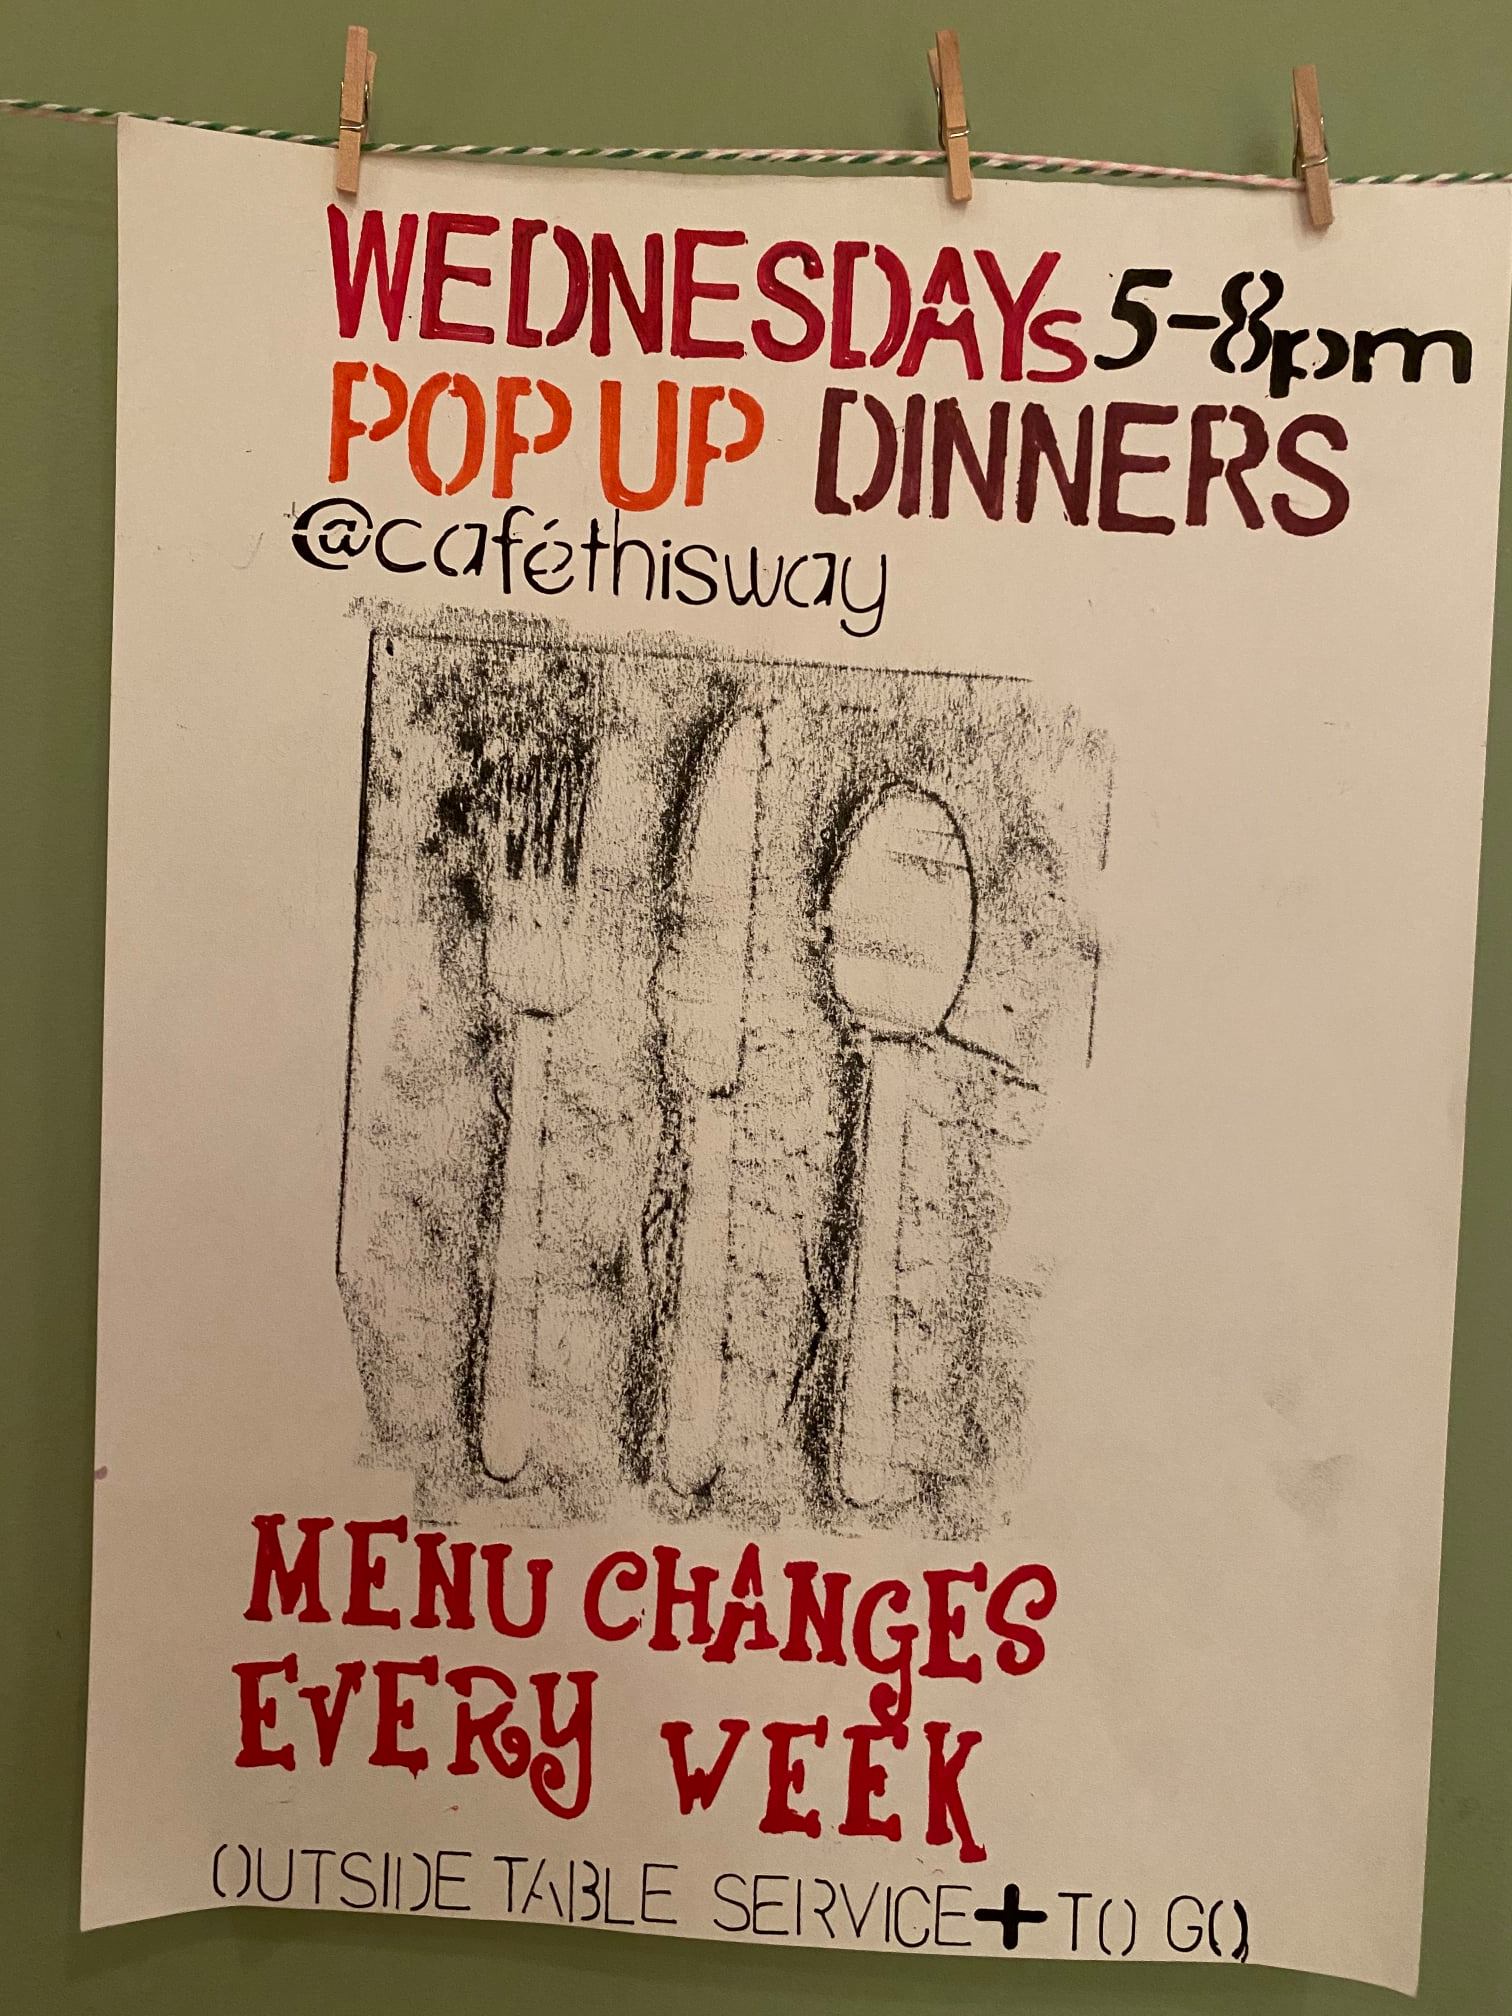 WEDNESDAYs 5-8pm
POP UP DINNERS
@caféthisway
MENU CHANGES
EVERY WEEK
OUTSIDE TABLE SERVICE + TO GO